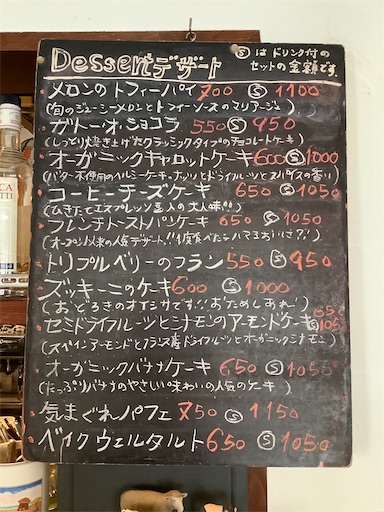 Dessertデザート
Ⓢはドリンク付の
セットの金額です。
メロンのトフィーパイ 700 Ⓢ 1100
(旬のジューシーメロンとトフィーソースのマリアージュ)
ガトーオショコラ 550 Ⓢ 950
(しっとり焼き上げたクラシックタイプのチョコレートケーキ)
オーガニックキャロットケーキ 600 Ⓢ 1000
(バター不使用のヘルシーケーキ・ナッツとドライフルーツとスパイスの香い)
コーヒーチーズケーキ 650 Ⓢ 1050
(ひきたてエスプレッソ豆入の大人味!!)
フレンチトーストパンケーキ 650 Ⓢ 1050
(オープン以来の人気デザート!!1度食べたらハマるおいしさ?!)
トリプルベリーのフラン 550 Ⓢ 950
ズッキーニのケーキ 600 Ⓢ 1000
(おどろきのオイシサです!!おためしあれ!)
セミドライフルーツとシナモンのアーモンドケーキ 650 Ⓢ 1050
(スペインアーモンドとフランス産ドライフルーツとオーガニックシナモン)
オーガニックバナナケーキ 650 Ⓢ 1050
(たっぷりバナナのやさしい味わいの人気のケーキ)
気まぐれパフェ 750 Ⓢ 1150
ベイクウェルタルト 650 Ⓢ 1050